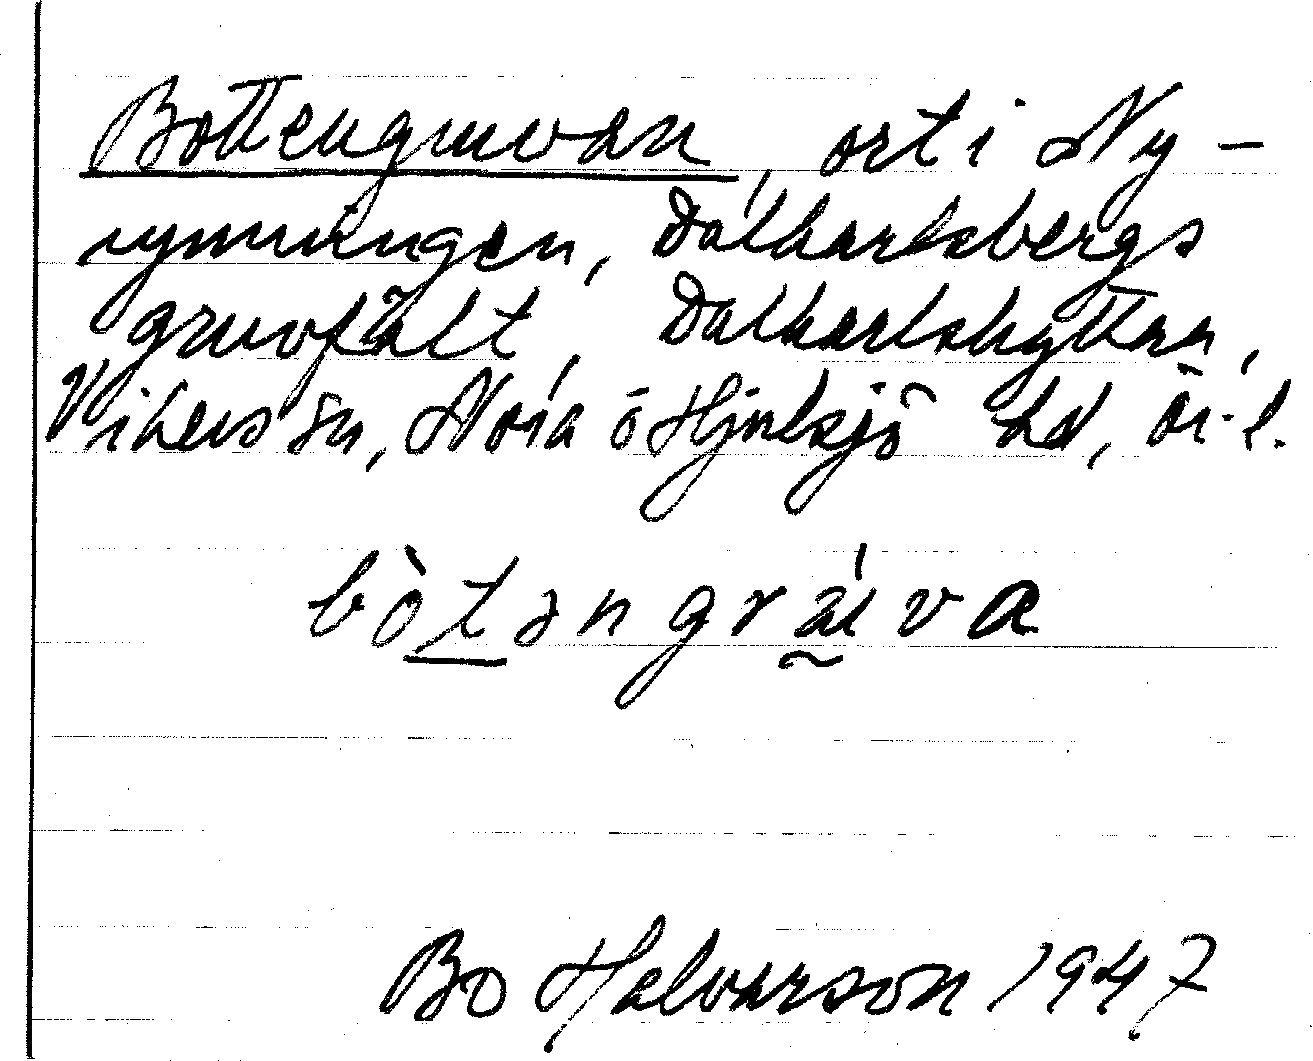 Bottengruvan, ort i Ny-
rymningen, Dalkarlsbergs
gruvfält, Dalkarlshyttan,
Vikers sn, Nora ö Hjulsjö hd, Ör. l.
bòtəngrʉ́va
Bo Halvarson 1947